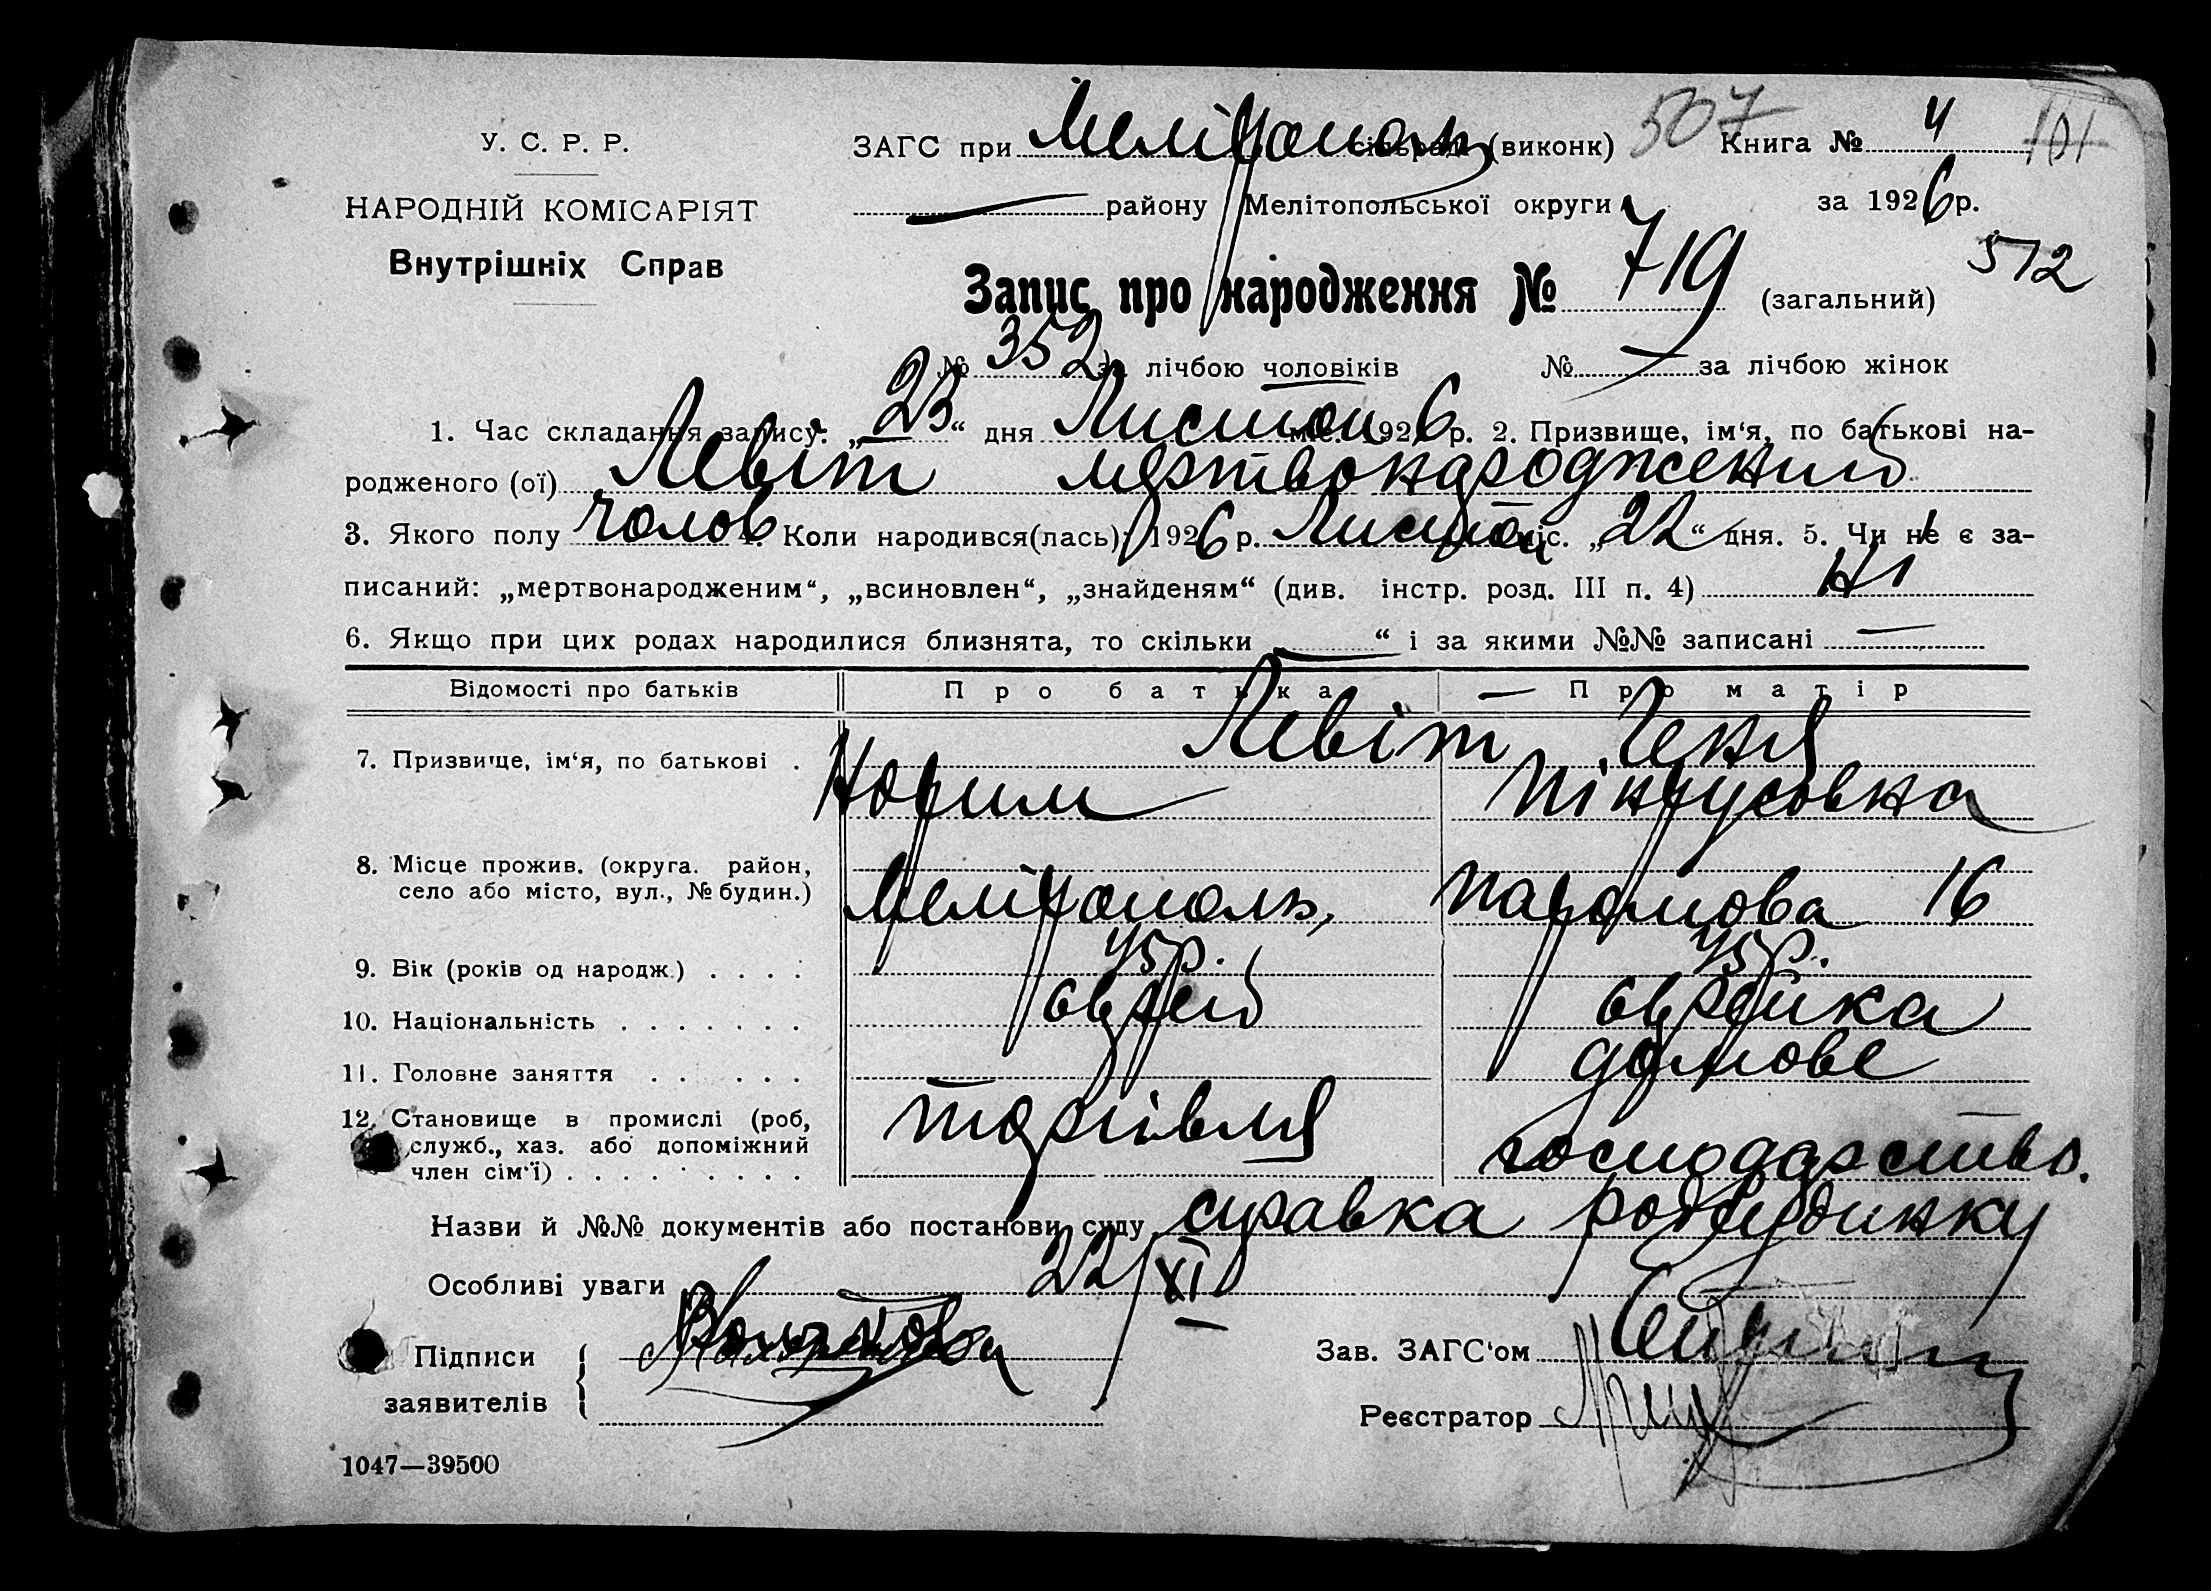 У. С. Р. Р.
НАРОДНІЙ КОМІСАРІЯТ
Внутрішніх Справ
ЗАГС при Мелітополь сільраді (виконк) 507 Книга № 4 101
району Мелітопольської округи за 1926 р.
Запис про народження № 719 (загальний) 512
№ 352 за лічбою чоловіків № за лічбою жінок
1. Час складання запису: „23“ дня Листоп міс. 1926 р. 2. Призвище, ім‘я, по батькові на-
родженого (ої) Левіт мертвонароджений
3. Якого полу чолов 4. Коли народився(лась): 1926 р. Листоп міс. „22“ дня. 5. Чи не є за-
писаний: „мертвонародженим“, „всиновлен“, „знайденям“ (див. інстр. розд. III п. 4) ні
6. Якщо при цих родах народилися близнята, то скільки “ і за якими №№ записані
Відомості про батьків Про батька Про матір
7. Призвище, ім‘я, по батькові . Левіт Геня
Пінхусовна
8. Місце прожив. (округа. район,
село або місто, вул., № будин.) Мелітополь, 16
9. Вік (років од народж.) . . . . 45р. 45р.
10. Національність . . . . . . . єврей єврейка
11. Головне заняття . . . . . . домове
12. Становище в промислі (роб, торгівля господарство.
служб., хаз. або допоміжний
член сім‘ї) . . . . . . . . .
Назви й №№ документів або постанови суду справка родбудинку
Особливі уваги 22/XI
Підписи
заявителів
Зав. ЗАГС‘ом
Реєстратор
1047—39500